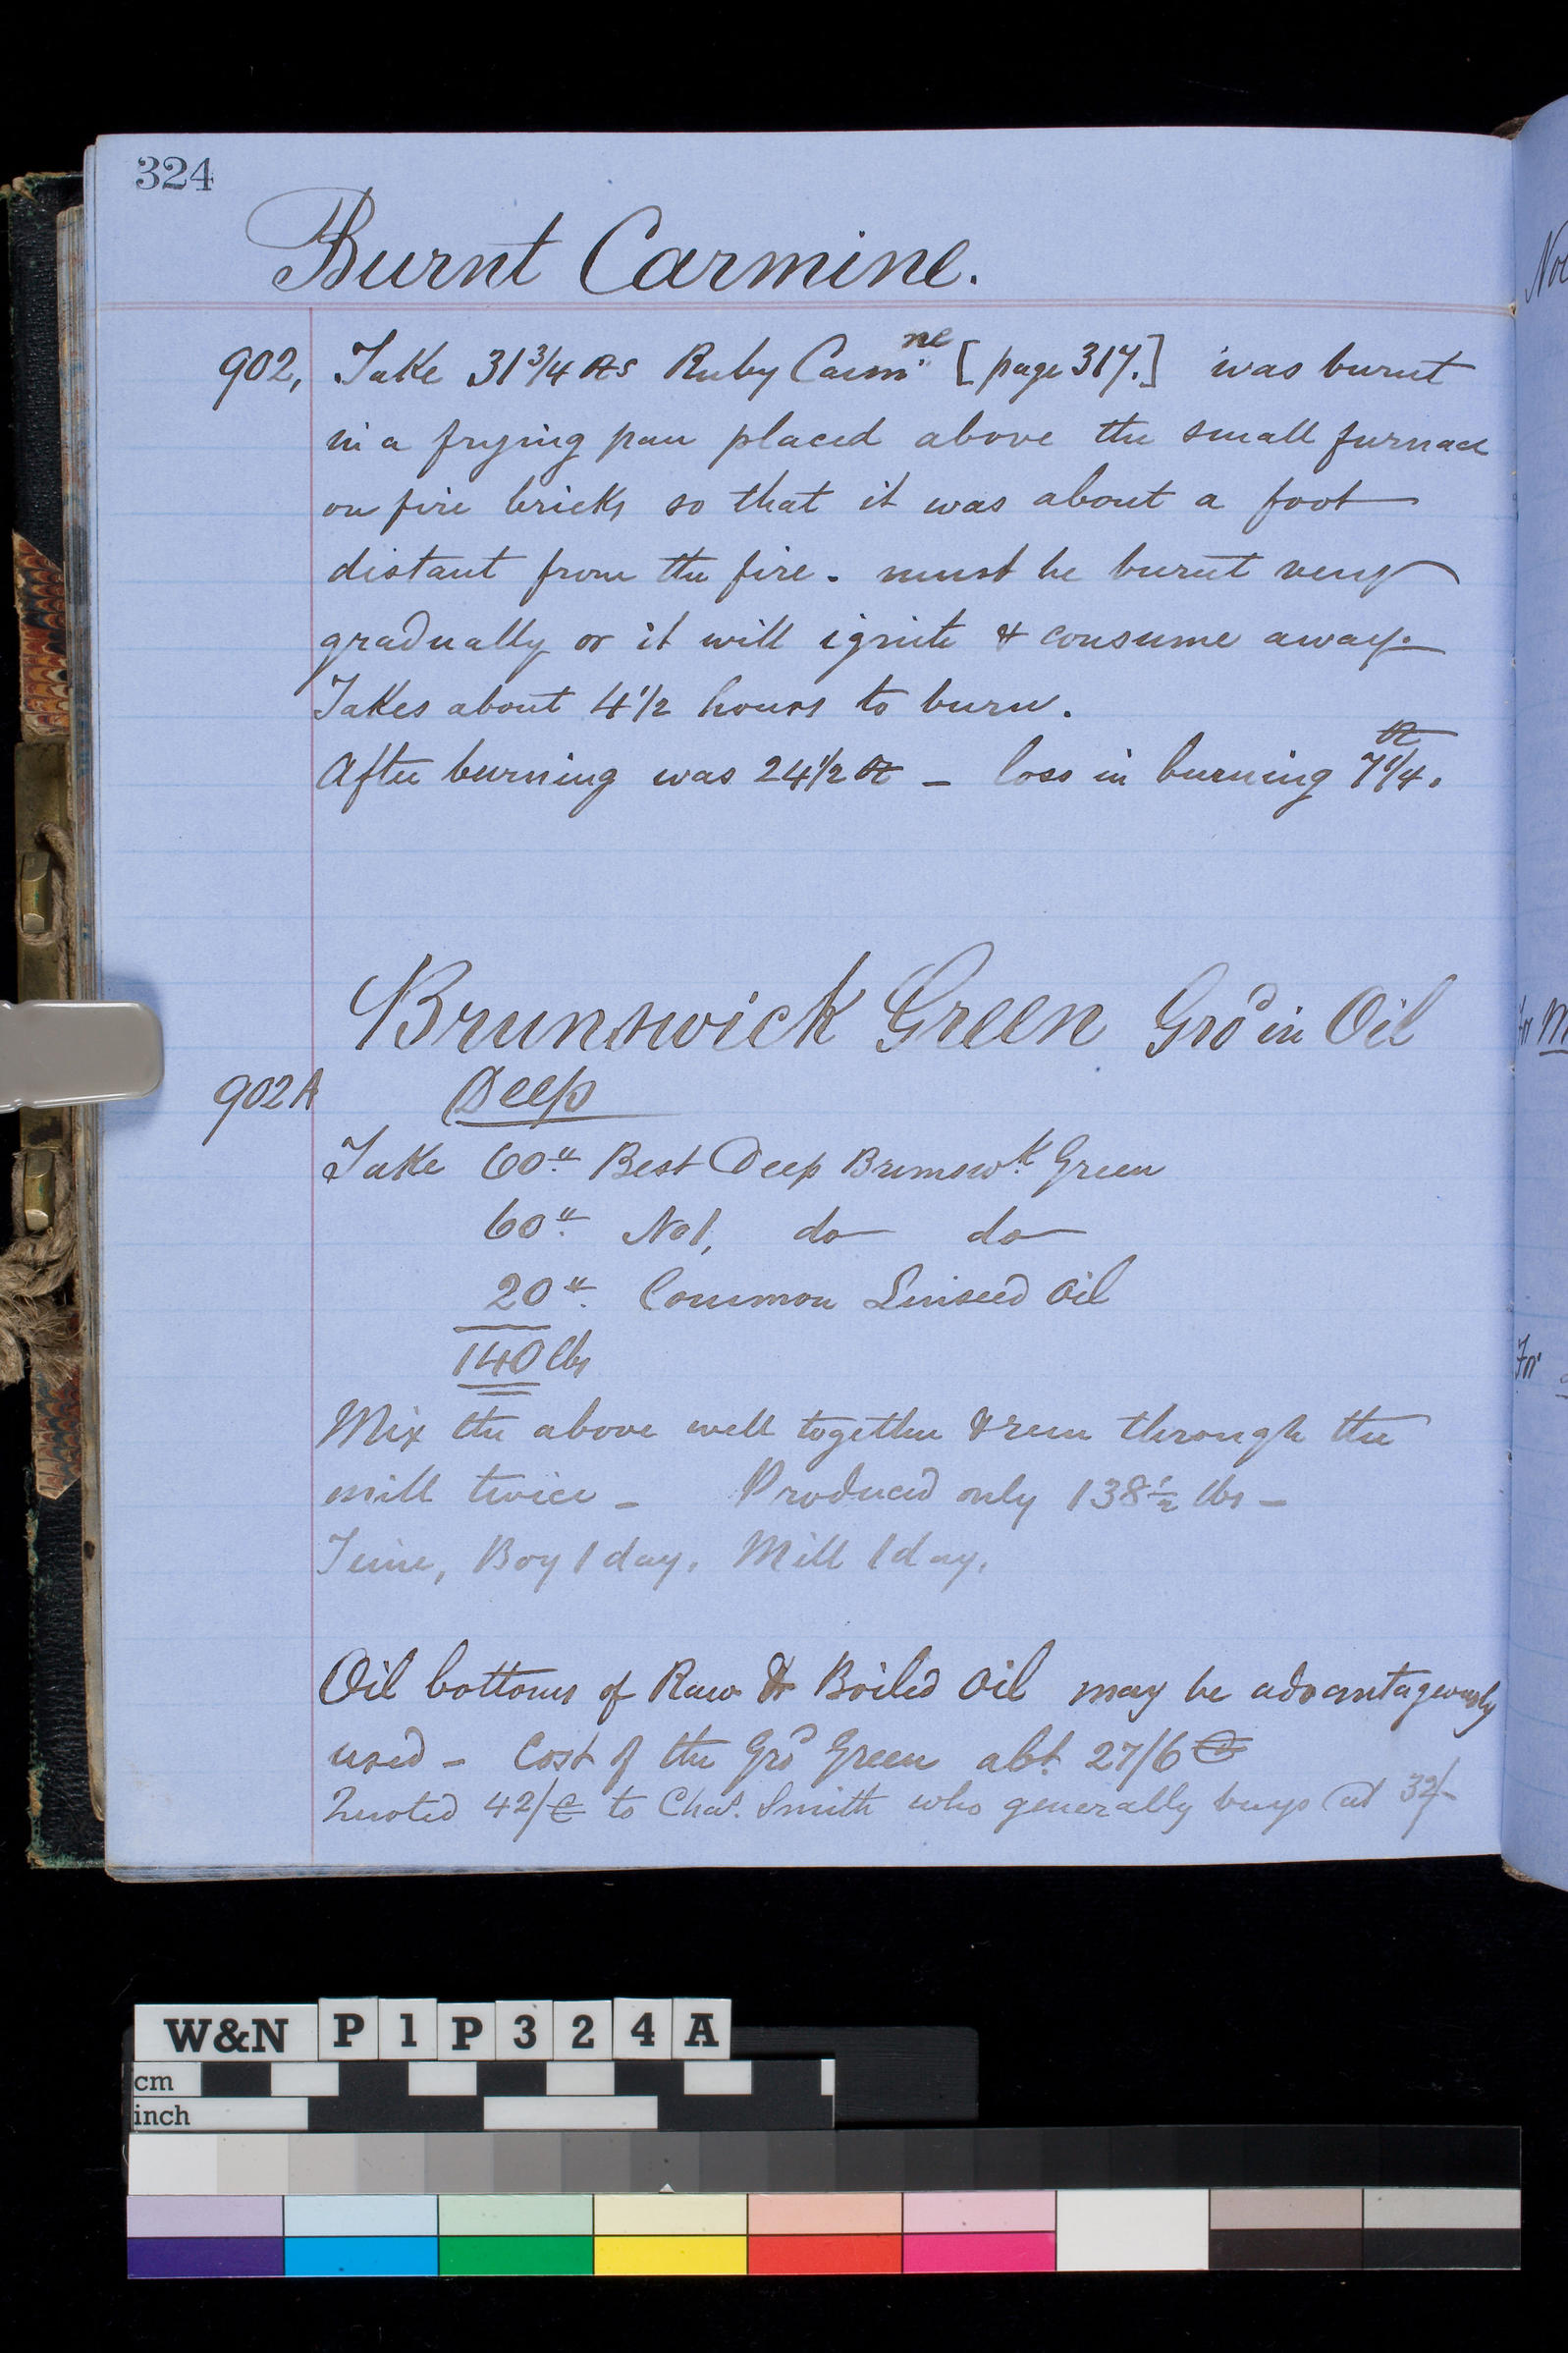 324
Burnt Carmine.
902, Take 31 3/4 ozs Ruby Carmne [page 317.] was burnt
in a frying pan placed above the small furnace
on fire bricks so that it was about a foot
distant from the fire. must be burnt very
gradually or it will ignite & consume away.
Takes about 4 1/2 hours to burn.
After burning was 24 1/2 oz – loss in burning 7 1/4 oz.
Brunswick Green Grd in Oil
902A Deep
Take 60" Best Deep Brunswk Green
60" No 1, do do
20" Common Linseed Oil
140 lbs
Mix the above well together & run through the
mill twice – Produced only 138 1/2 lbs –
Time, Boy 1 day. Mill 1 day.
Oil bottoms of Raw & Boiled Oil may be advantageously
used – Cost of the Grd Green abt 27/6
Quoted 42/ to Chas. Smith who generally buys at 32/-
W&N P1P324A
cm
inch
For